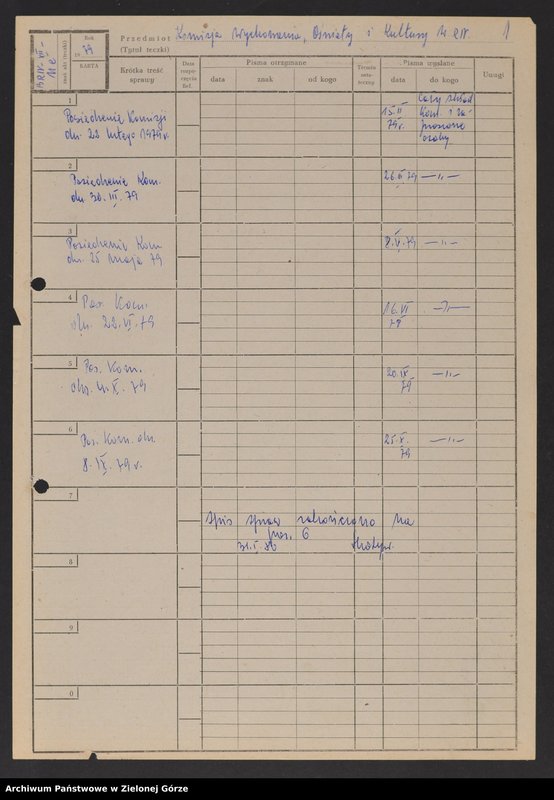 Rok
79
KARTA
znak akt (teczki)
Przedmiot Komisja Wychowania, Oświaty i Kultury
(Tytuł teczki)
1
Krótka treść
sprawy
Data
rozpo-
częcia
Pisma otrzymane
data znak od kogo
Termin
osta-
teczny
Pisma wysłane
data do kogo
Uwagi
1
Posiedzenie Komisji
dn. 22 lutego 1979 r.
15 II
79 r.
Cały skład
Kom. i za-
proszone
osoby
2
Posiedzenie Kom.
dn. 30. III. 79
— „ —
3
Posiedzenie Kom
dn. 25 maja 79
8. V. 79 — „ —
4
Pos. Kom.
dn. 22. VI. 79
16. VI
79
— „ —
5
Pos. Kom.
79
20. IX.
79
— „ —
6
Pos. Kom. dn.
79 r.
25. X.
79
— „ —
7
Spis spraw zakończono na
poz. 6
8
9
0
Archiwum Państwowe w Zielonej Górze